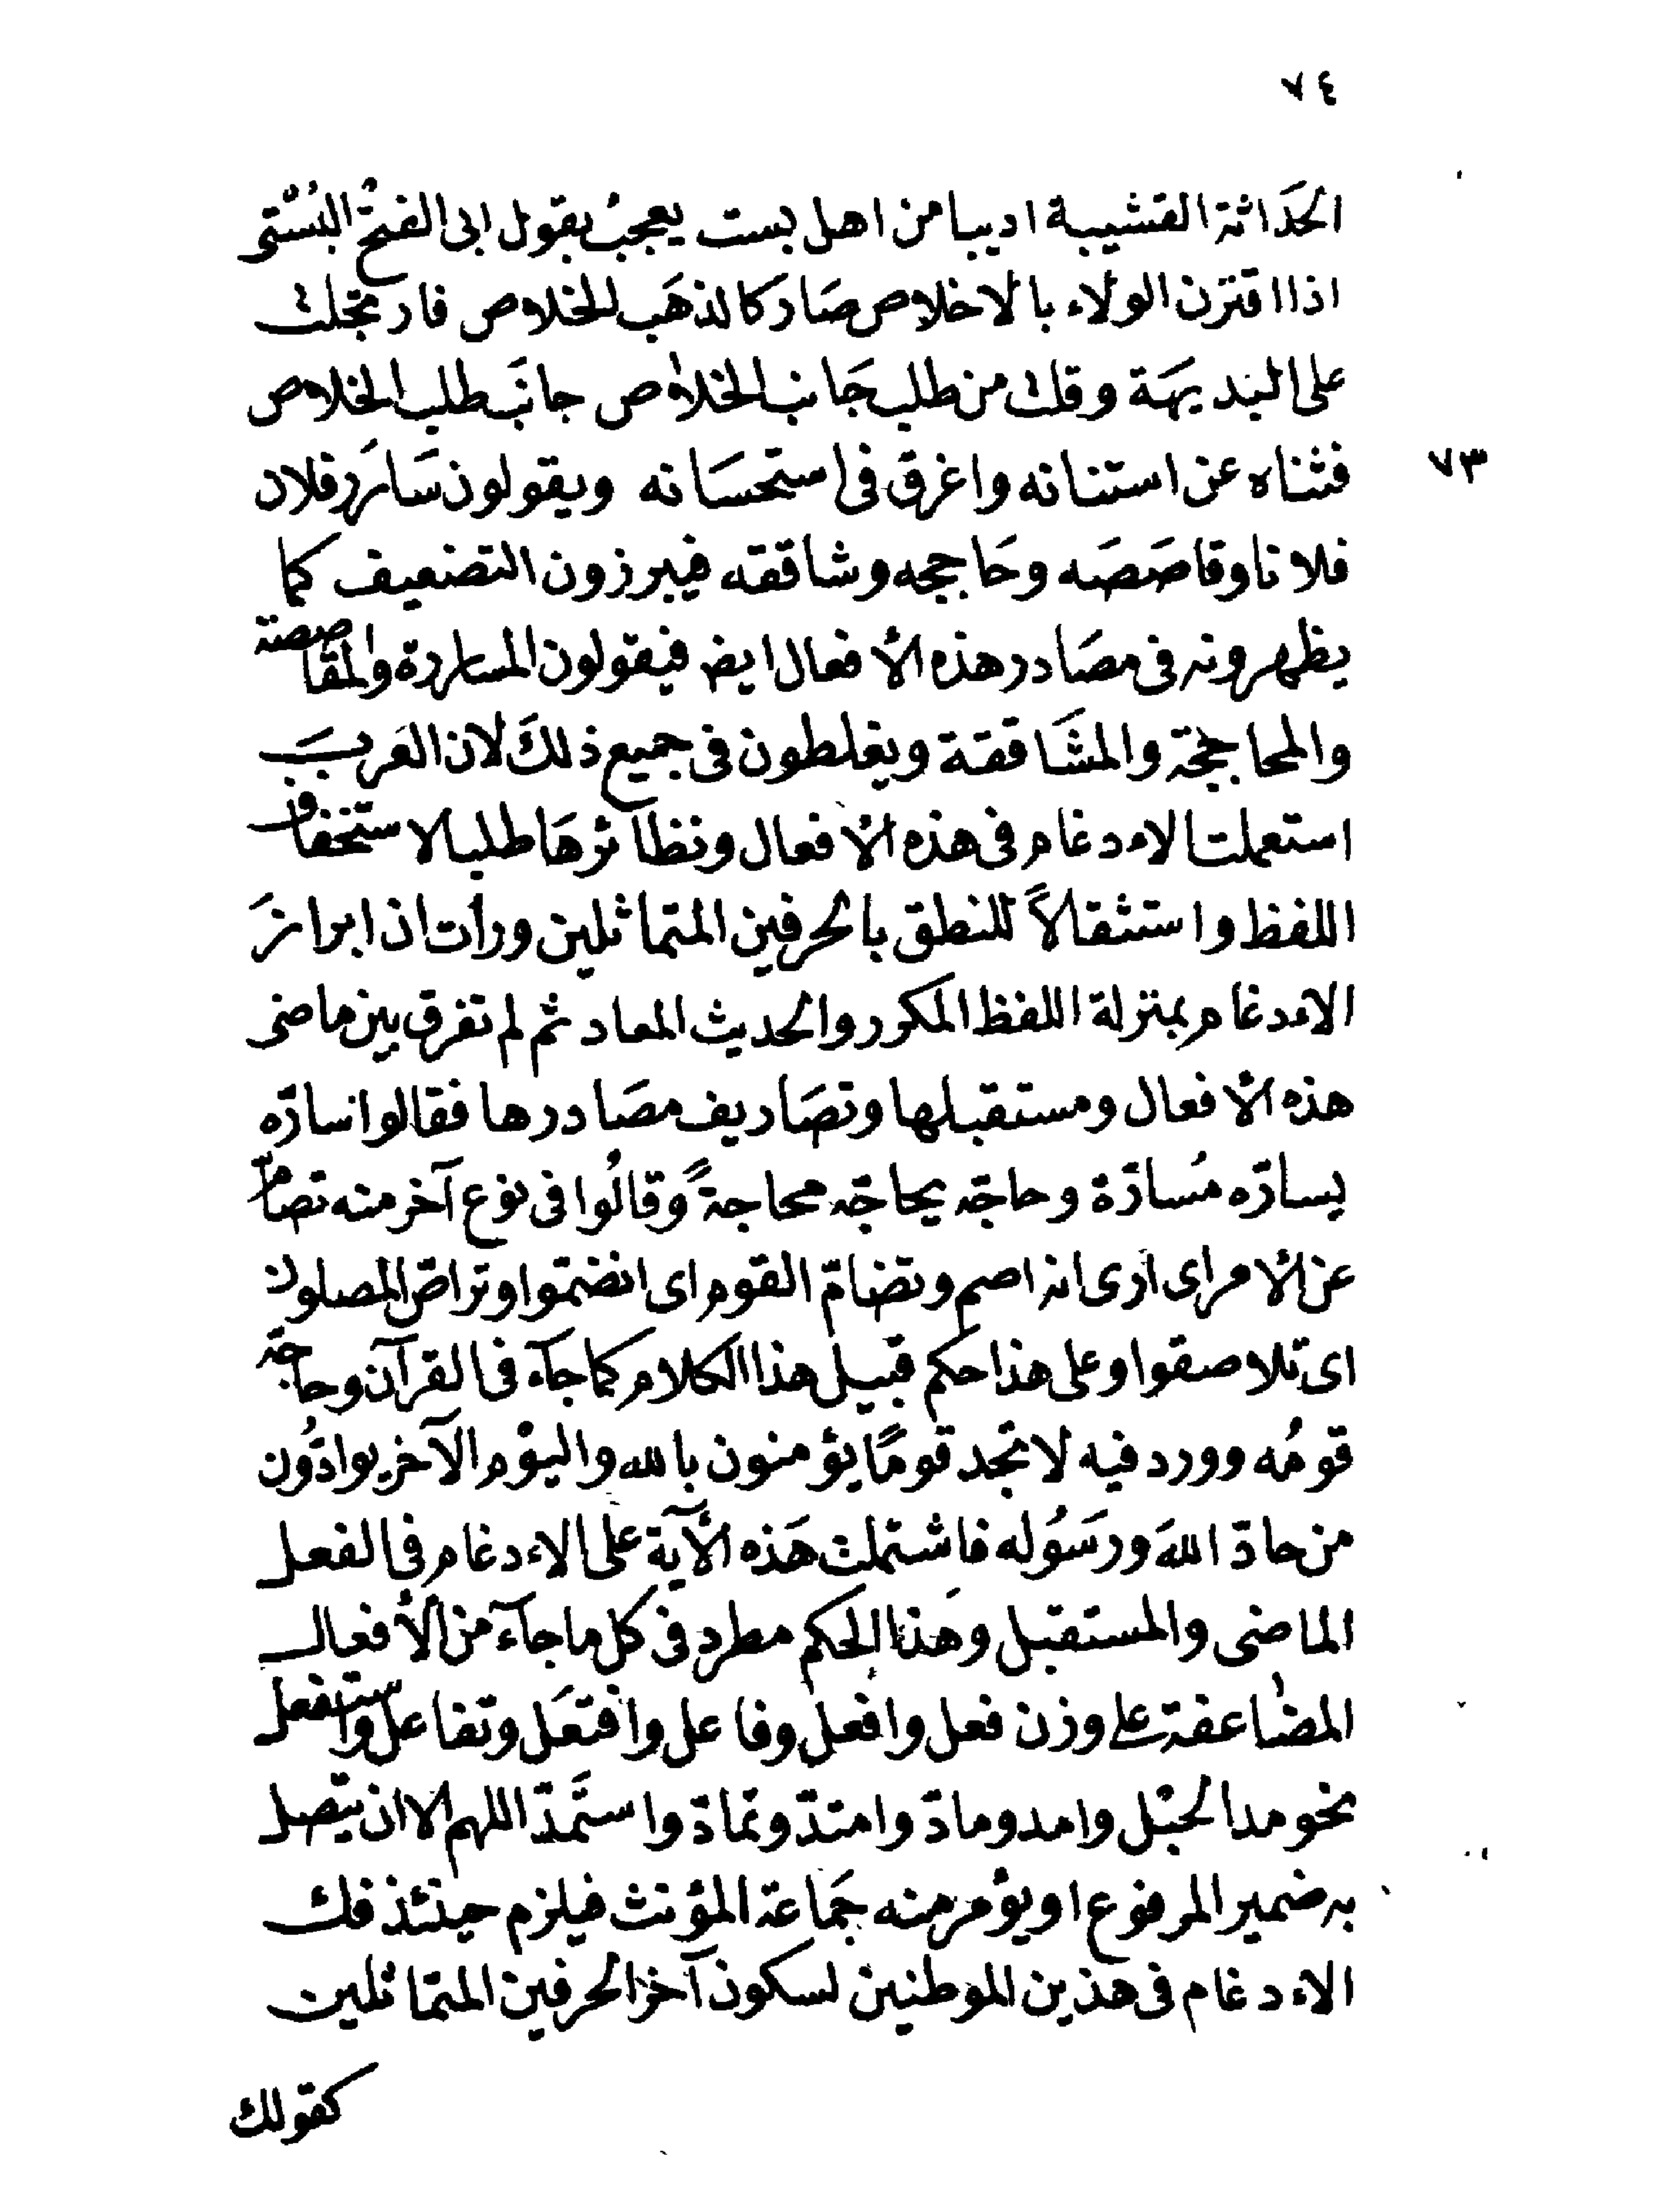 ٧٤
الحَدَاثة القشيبة اديبا من اهل بست يعجبُ بقول ابى الفتحْ البُسْتى
اذا اقترن الولاء بالاخلاص صَار كالذهَب للخلاص فارتجلت
على البَديهَة وقلت من طلب جَانب الخلاص جانَب طلب الخلاص
٧٣
فثناه عن استنانه واغرق فى استحسَانه ويقولون سَارَر فلان
فلانا وقاصَصَه وحَاججه وشاققه فيبرزون التضعيف كما
يظهرونه فى مصَادر هذه الأفعال ايض فيقولون المساررة والمقاصصة
والمحاججة والمشَاققة ويغلطون فى جميع ذلكَ لان العَربَ
استعملت الاءدغام فى هذه الأفعال ونظآئرهَا طلبا لاستخفاف
اللفظ واستثقالاً للنطق بالحرفين المتماثلين ورأت ان ابرازَ
الاءدغام بمنزلة اللفظ المكرر والحديث المعاد ثم لم تفرق بين ماضى
هذه الأفعال ومستقبلها وتصَاريف مصَادرها فقالوا سارّه
يسارّه مُسارّة وحاجّه يحاجّه محاجةً وقالُوا فى نوع آخر منه تصامّ
عن الأمر اى ارى انه اصم وتضامّ القوم اى انضمّوا وتراصّ المصلون
اى تلاصقوا وعلى هذا حكم قبيل هذا الكلام كما جآء فى القرآن وحاجّه
قومُه وورد فيه لا تجد قومًا يؤمنون بالله واليوْم الآخر يوادّون
من حادّ اللهَ ورسَوُله فاشتملت هَذه الآية على الاءدغام فى الفعل
الماضى والمستقبل وهَذا الحكم مطرد فى كل ما جآء من الأفعال
المضاعفة على وزن فعل وافعل وفاعل وافتعَل وتفاعل واستفعل
نحو مد الحبْل وامد ومادّ وامتدّ وتمادّ واستَمدّ اللهم الا ان يتصل
به ضمير المرفوع او يؤمر منه جَماعة المؤنث فيلزم حينئذ فك
الاءدغام فى هذين الموطنين لسكون آخر الحرفين المتماثلين
كقولك